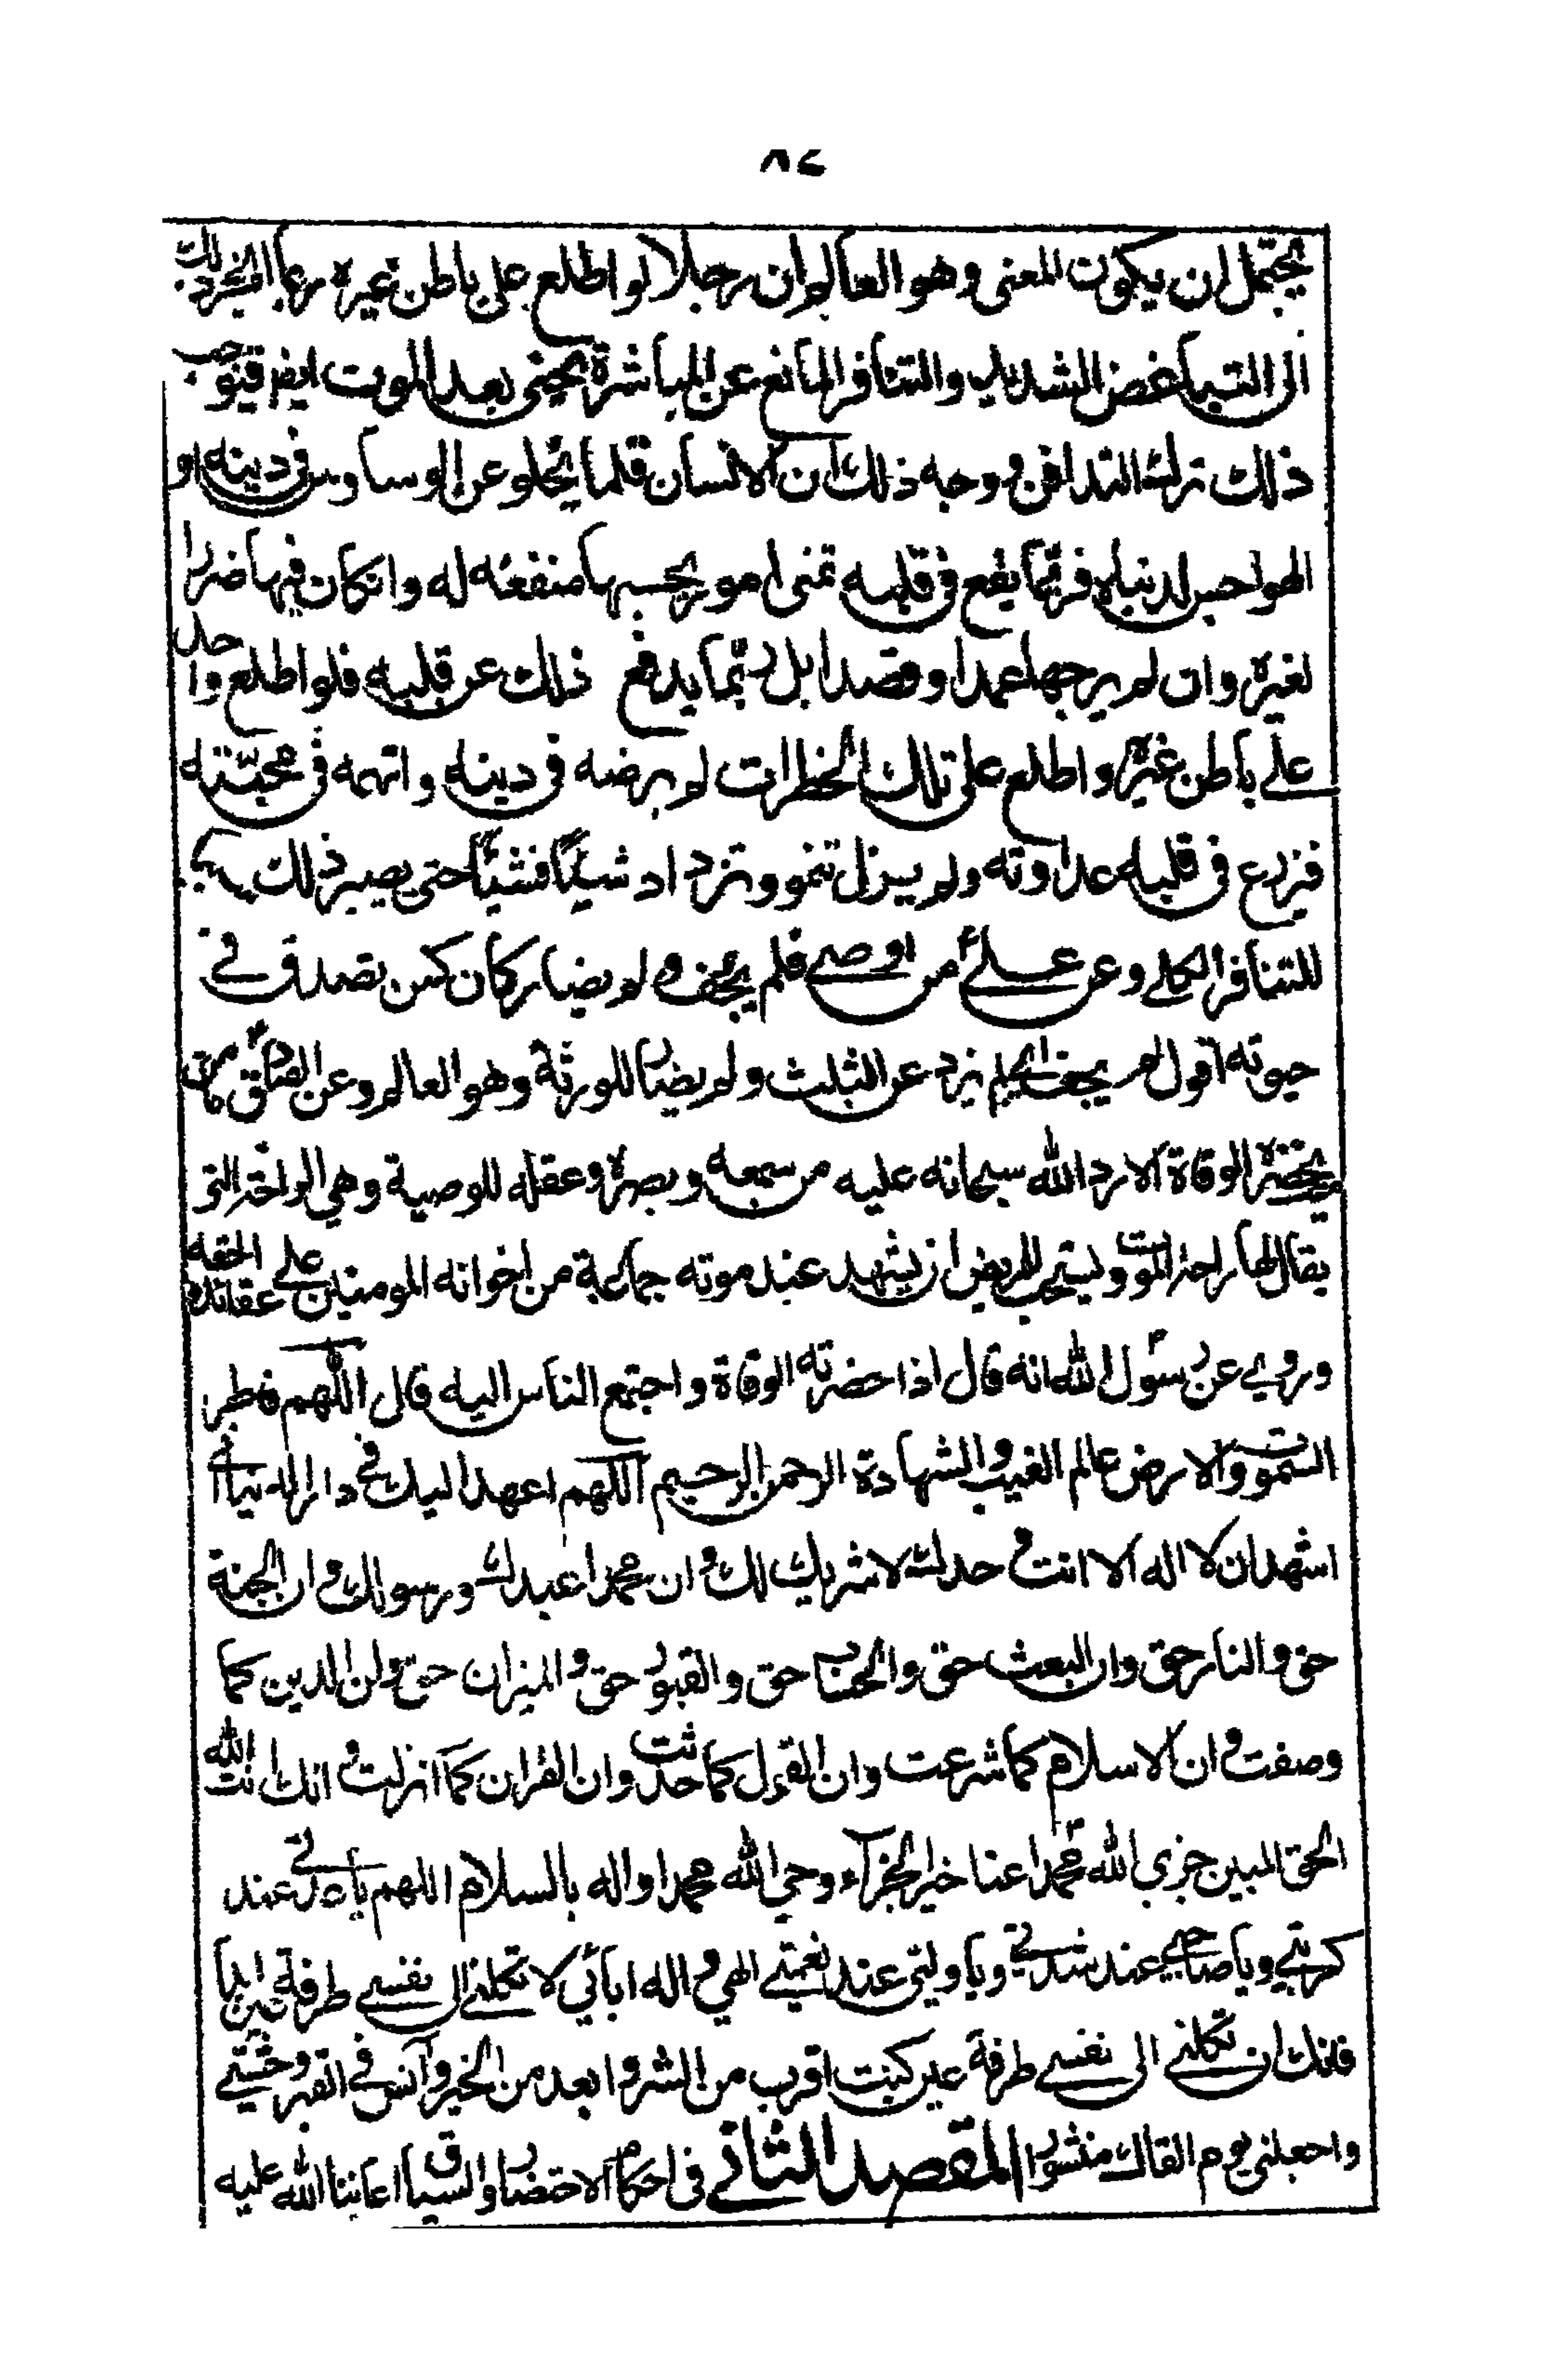 ٨٤
يحتمل ان يكون المعنى وهو العالم ان رجلا لو اطلع على باطن غيره ربما انجر ذلك
الى التباغض الشديد والتنافر المانع عن المباشرة حتى بعد الموت ايضا فيوجب
ذلك ترك التدافن ووجه ذلك ان الانسان قلما يخلو عن الوساوس فى دينه او
الهواجس لدنياه فربما يقع فى قلبه تمنى امور يحسبها منفعة له وانكان فيها ضررا
لغيره وان لم يرجها عمدا وقصدا بل ربما يدفع ذلك عن قلبه فلو اطلع واحد
على باطن غيره واطلع على تلك الخطرات لم يرضه فى دينه واتهمه فى محبته
فزرع فى قلبه عداوته ولم يزل تنمو وتزداد شيئا فشيئا حتى يصير ذلك سببا
للتنافر الكلى وعن على من اوصى فلم يحف ولم يضار كان كمن تصدق فى
حيوته اقول لم يحف اى لم يزد عن الثلث ولم يضار للورثة وهو العالم وعن الصادق ما من
ميت تحضره الوفاة الا رد الله سبحانه عليه من سمعه وبصره وعقله للوصية وهي الراحة التى
يقال لها راحة الموت ويستحب للمريض ان يشهد عند موته جماعة من اخوانه المومنين على عقائده الحقه
وروي عن رسول الله انه قال اذا حضرته الوفاة واجتمع الناس اليه قال اللهم فاطر
السموت والارض عالم الغيب والشهادة الرحمن الرحيم اللهم اعهد اليك فى دار الدنيا انى
اشهد ان لا اله الا انت وحدك لا شريك لك وان محمدا عبدك ورسولك وان الجنة
حق والنار حق وان البعث حق والحساب حق والقبور حق والميزان حق وان الدين كما
وصفت وان الاسلام كما شرعت وان القول كما حدثت وان القران كما انزلت وانك انت الله
الحق المبين جزى الله محمدا عنا خير الجزآء وحي الله محمدا واله بالسلام اللهم يا عدتى عند
كربتي ويا صاحبي عند شدتي ويا وليى عند نعمتي الهي واله ابائي لا تكلنى الى نفسي طرفة عين ابدا
فانك ان تكلنى الى نفسي طرفة عين كنت اقرب من الشر وابعد من الخير وآنس فى القبر وحشتي
واجعلنى يوم القاك منشورا المقصد الثانى فى احكام الاحتضار والسياق اعاننا الله عليه